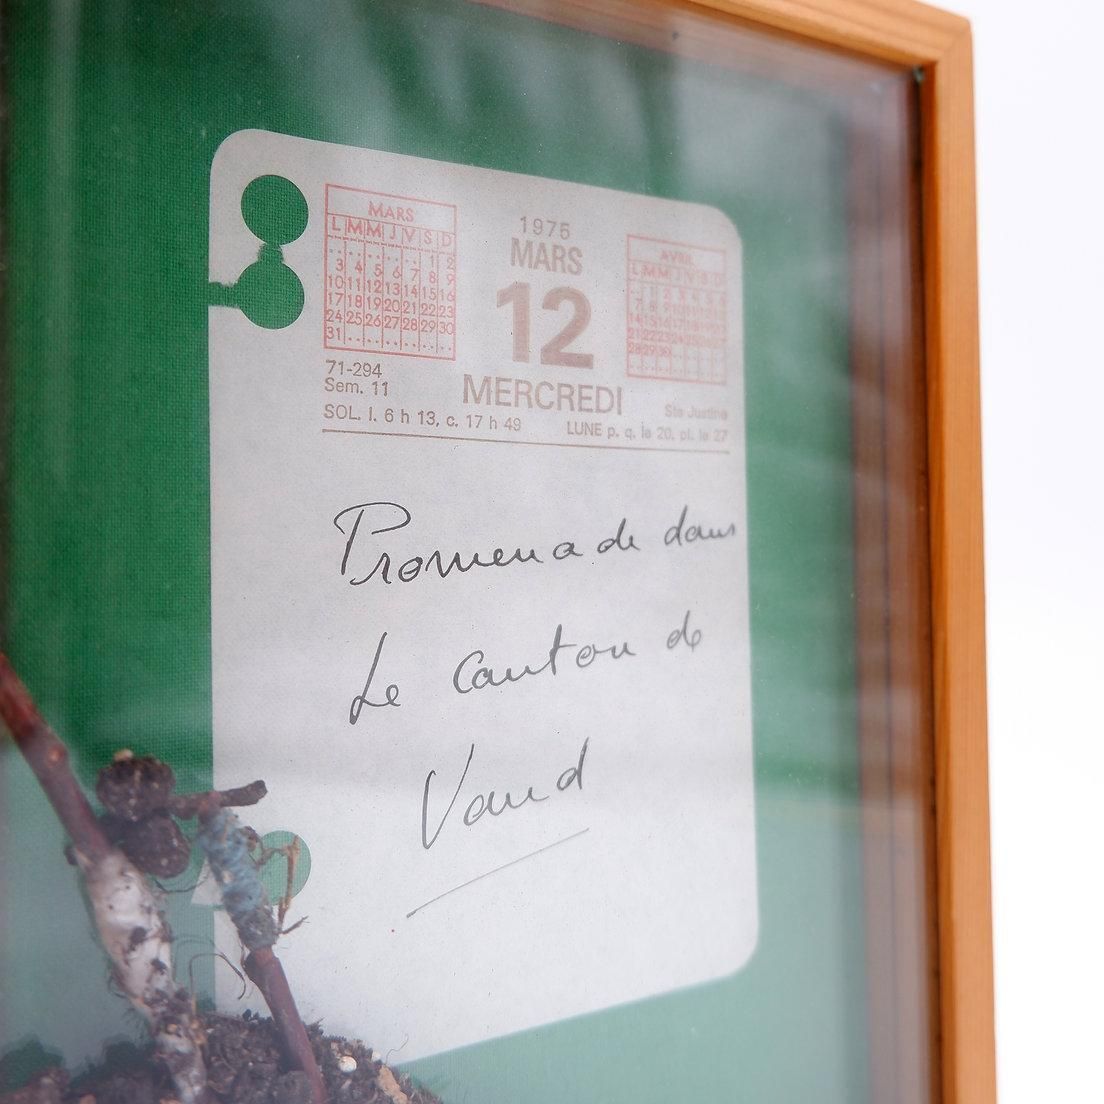 MARS
L M M J V S D
1 2
3 4 5 6 7 8 9
10 11 12 13 14 15 16
17 18 19 20 21 22 23
24 25 26 27 28 29 30
31
71-294
Sem. 11
1975
MARS
12
MERCREDI
AVRIL
L M M J V S D
1 2 3 4 5 6
7 8 9 10 11 12 13
14 15 16 17 18 19 20
21 22 23 24 25 26 27
28 29 30
Ste Justine
SOL. l. 6 h 13, c. 17 h 49
LUNE p. q. le 20, pl. le 27
Promenade dans
Le canton de
Vaud